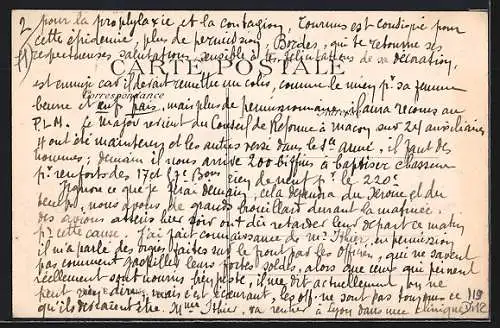 2 pour la prophylaxie et la contagion, Tournus est consigné pour
cette épidémie, plus de permission, Bordes, qui te retourne ses
respectueuses salutations, sensible à tes félicitations de sa décoration,
CARTE POSTALE
est ennuyé car il devait remettre un colis, comme le mien pr sa femme
Correspondance
beurre et œufs pais, mais plus de permissionnaire, il aura recours au
P.L.M. Le major revient du Conseil de Réforme à Macon sur 24 auxiliaires
4 ont été maintenus et les autres versé dans le Sce armé, il faut des
hommes; demain il nous arrive 200 biffins à baptiser chasseurs
pr renforts des 17e et 7e Bons rien de neuf pr le 220e
J'ignore ce que je ferai demain, cela dépendra du Jérome et du
temps, nous avons de grands brouillard durant la matinée
des avions atterris hier soir ont dû retarder leur départ ce matin
pr cette cause. J'ai fait connaissance de Mr Ithier, en permission
il m'a parlé des orgies faites sur le front par les officiers, qui ne savent
pas comment gaspiller leurs fortes soldes, alors que ceux qui peinent
réellement sont nourris peu peste, il me dit actuellement on ne
peut rien dire, mais c'est écœurant, les off. ne sont pas toujours ce
qu'ils devraient être. Mme Ithier, va rentrer à Lyon dans une clinique